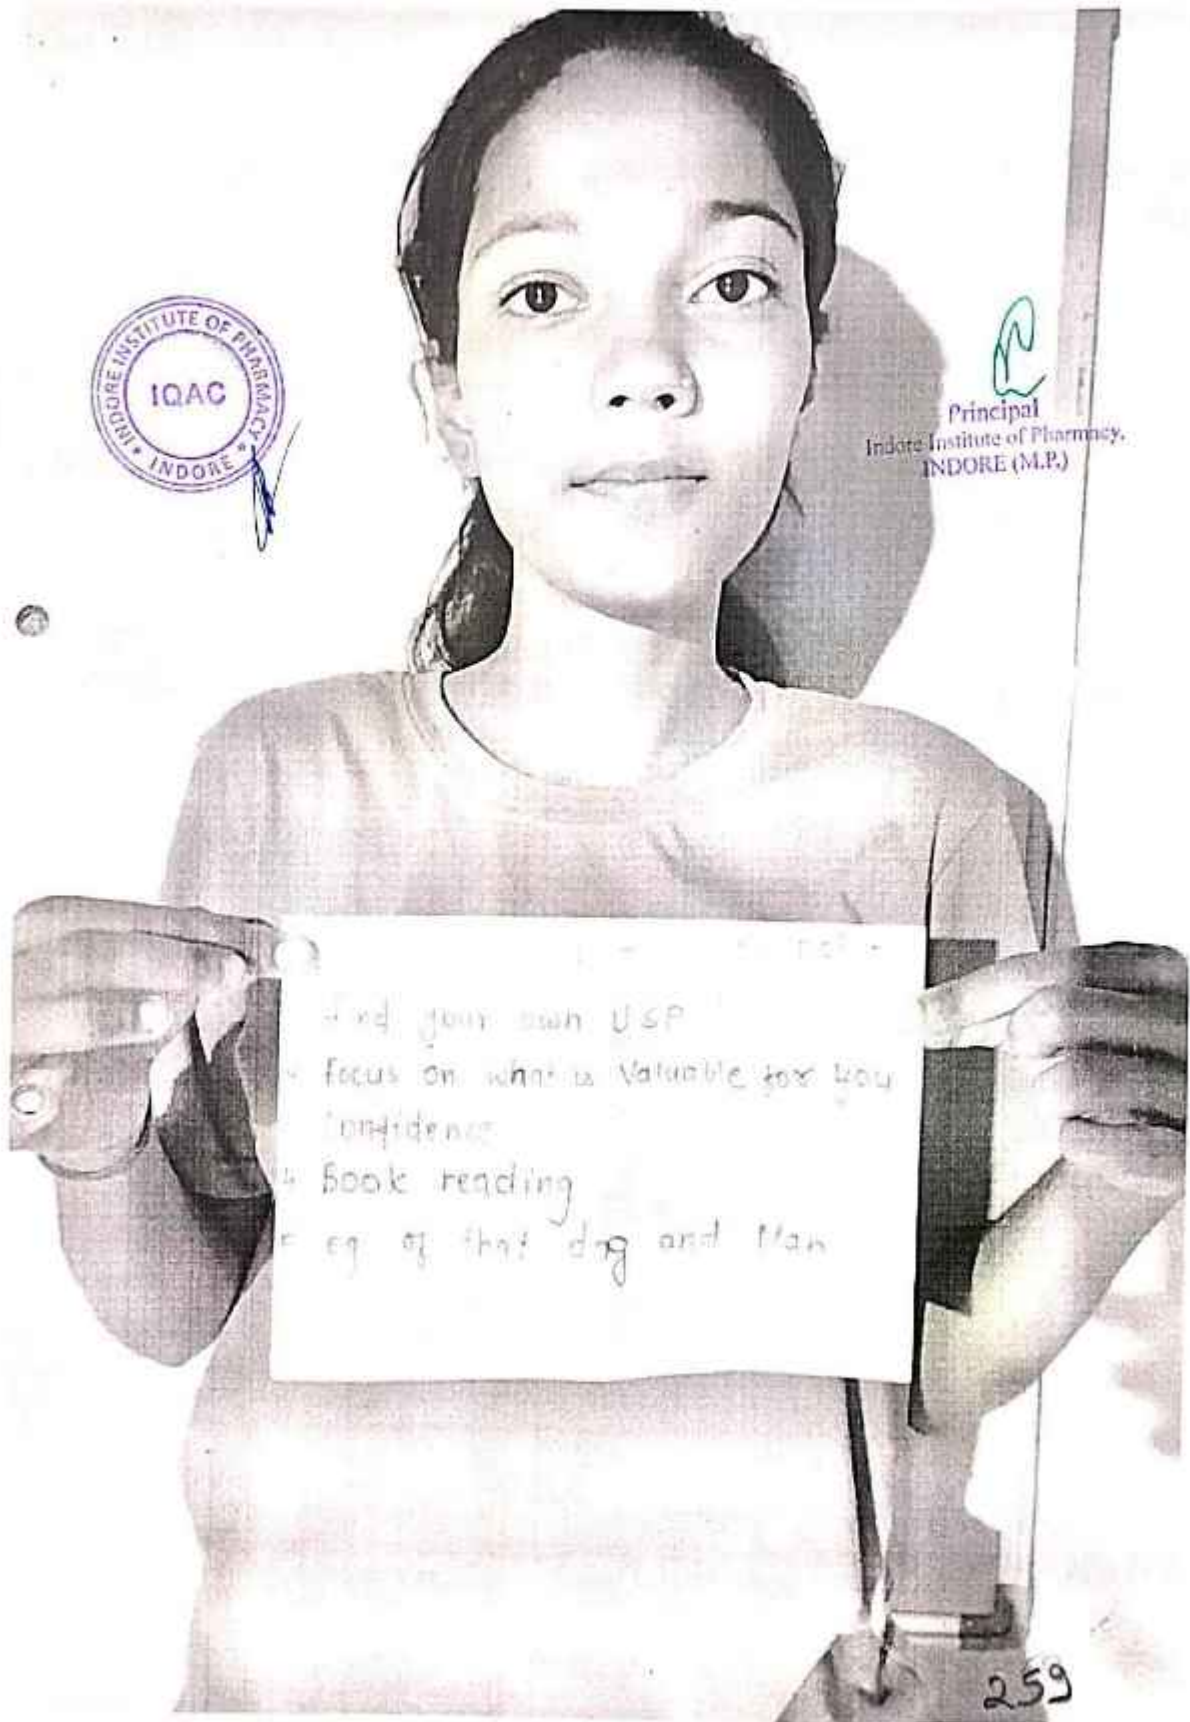 INDORE INSTITUTE OF PHARMACY
IQAC
INDORE
Principal
Indore Institute of Pharmacy,
INDORE (M.P.)
find your own USP
focus on what is Valuable for you
Confidence
Book reading
eg of that dog and Man
259